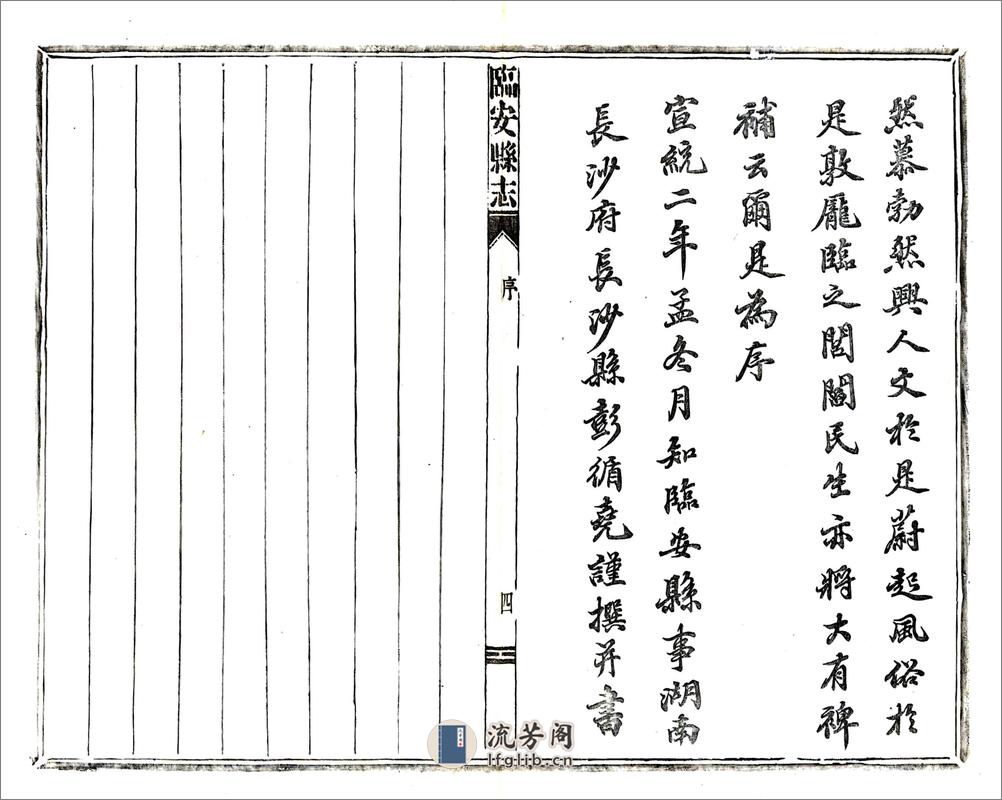 然慕勃然興人文於是蔚起風俗於
是敦龐臨之閭閻民生亦將大有裨
補云爾是為序
宣統二年孟冬月知臨安縣事湖南
長沙府長沙縣彭循堯謹撰并書
臨安縣志
序
四
流芳阁
lfglib.cn